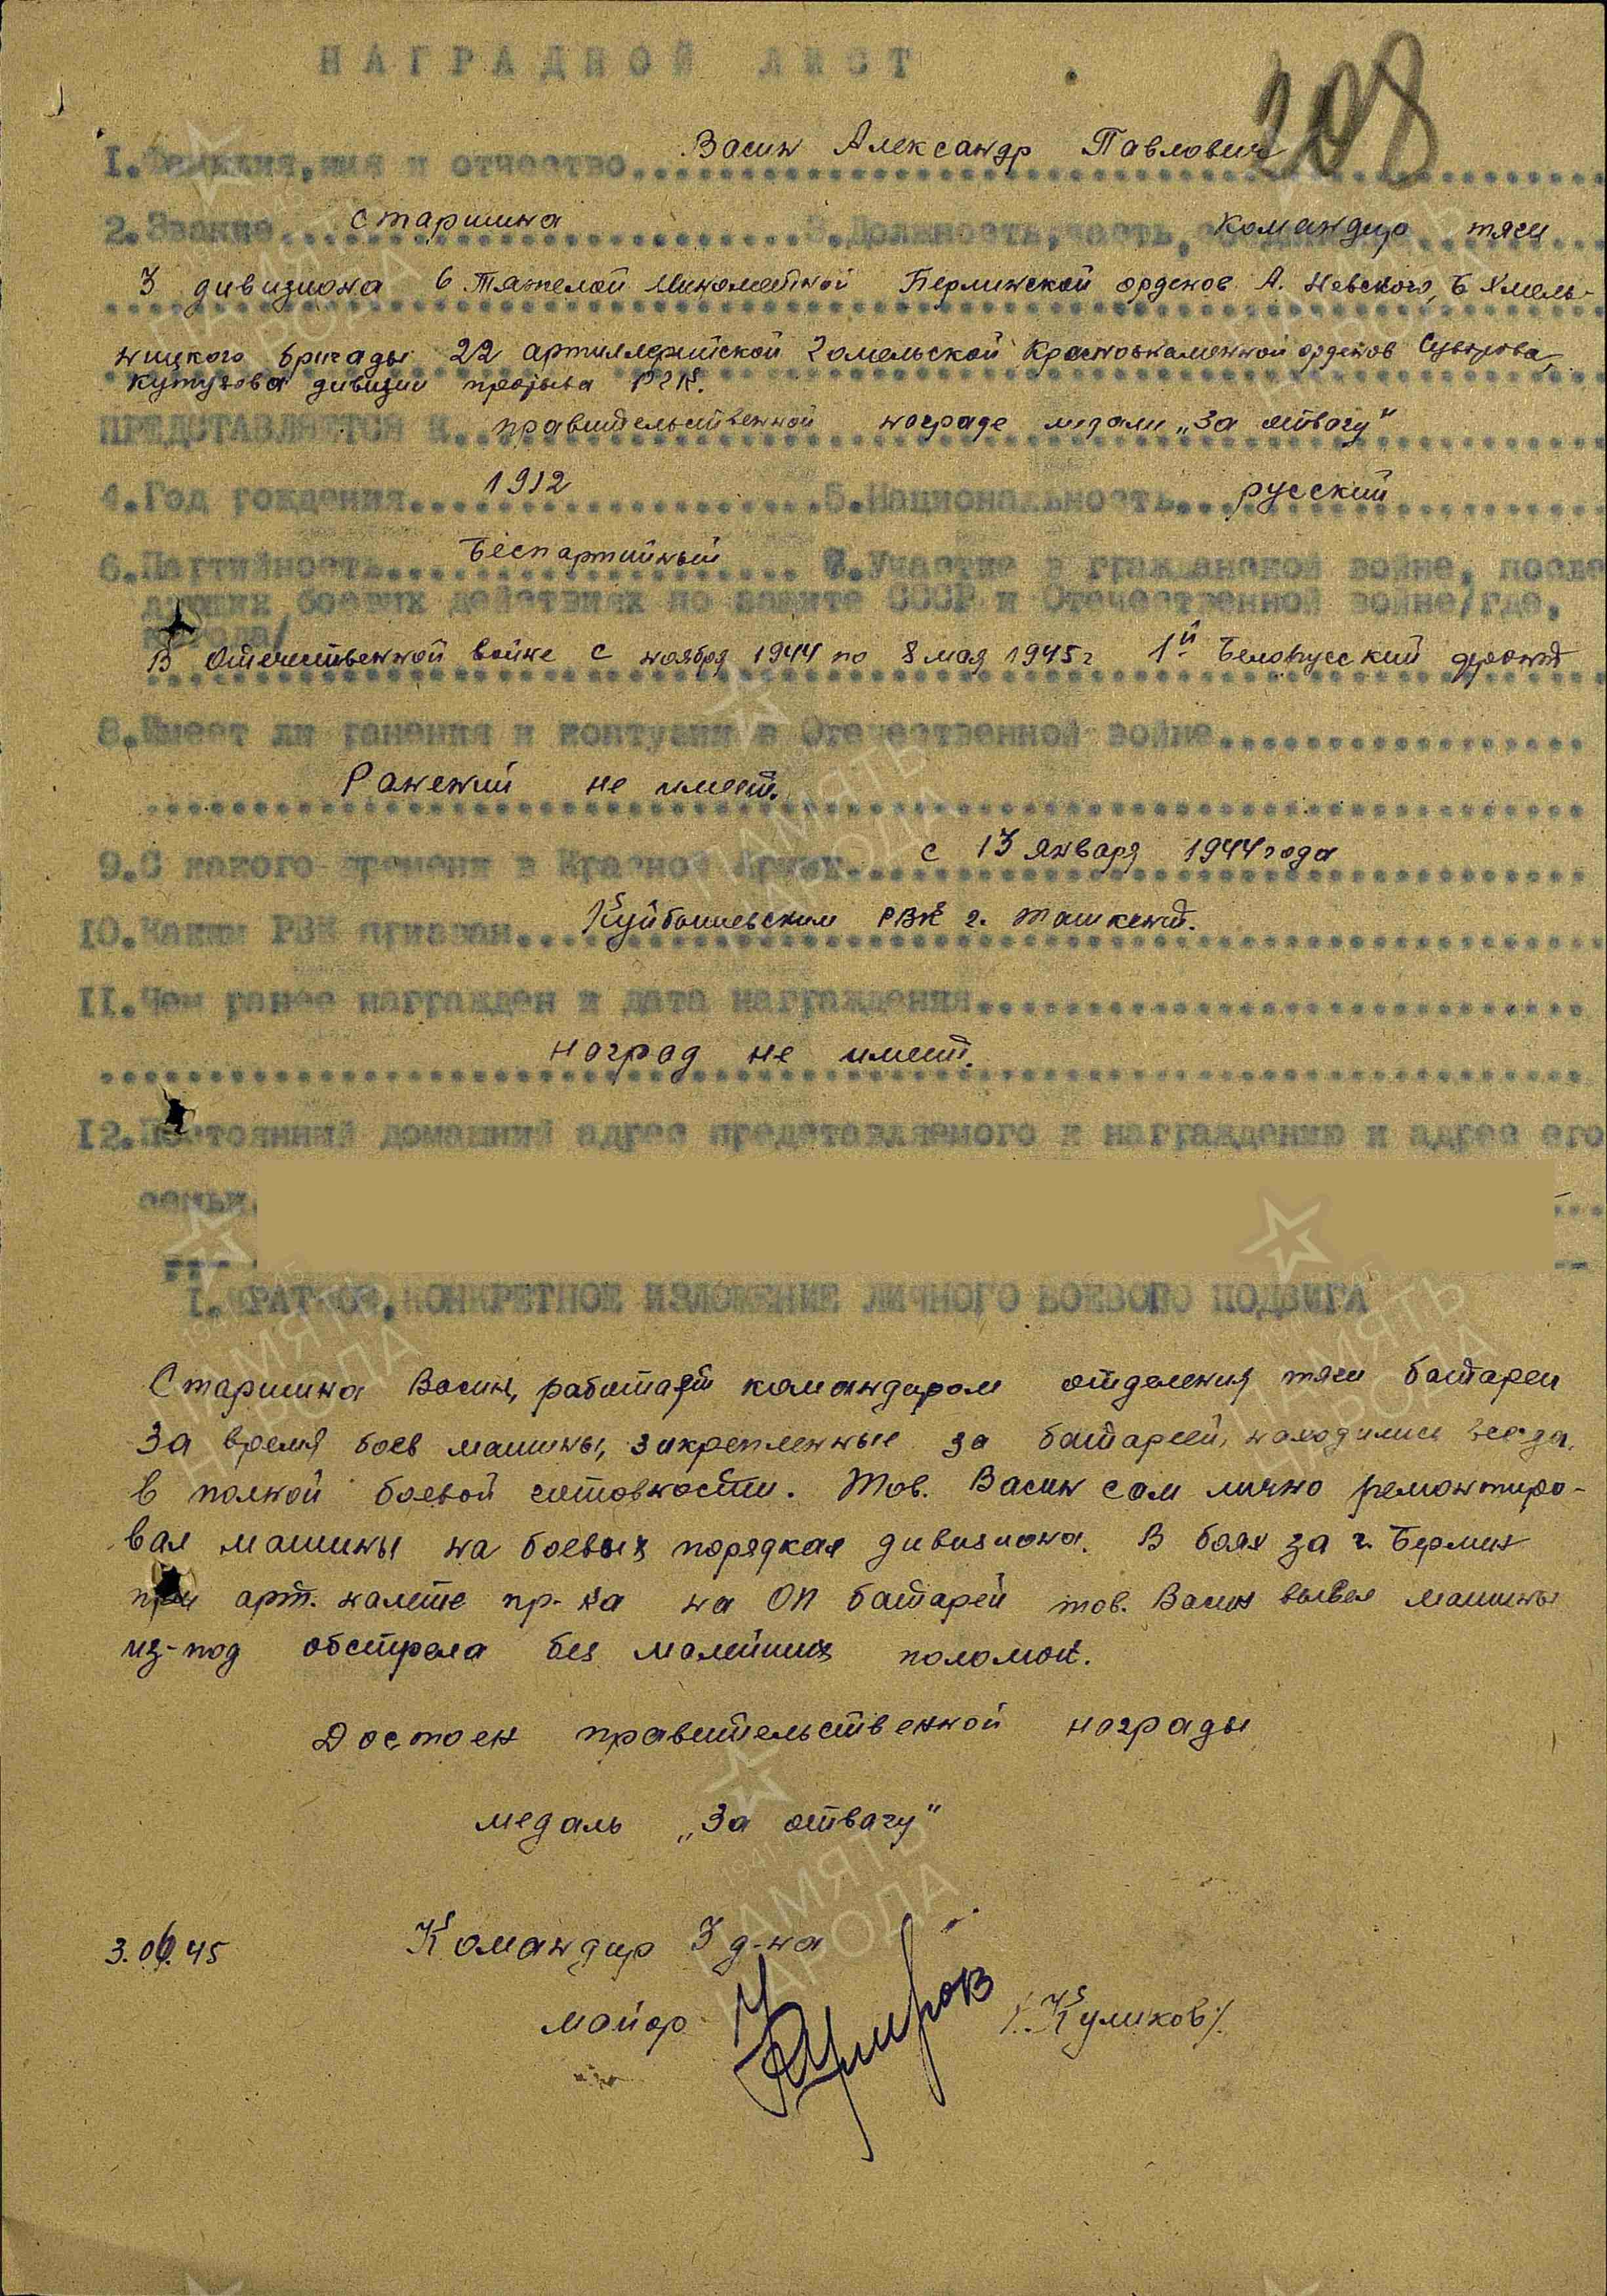 НАГРАДНОЙ ЛИСТ
208
1. Фамилия, имя и отчество Васин Александр Павлович
2. Звание старшина 3. Должность, часть, командир тяги
3 дивизиона 6 Тяжелой Минометной Берлинской орденов А. Невского, Б Хмель-
ницкого бригады 22 артиллерийской Гомельской Краснознаменной орденов Суворова,
Кутузова дивизии прорыва РГК.
ПРЕДСТАВЛЯЕТСЯ К правительственной награде медали „За отвагу"
4. Год рождения 1912 5. Национальность русский
6. Партийность Беспартийный 7. Участие в гражданской войне, после
дующих боевых действиях по защите СССР и Отечественной войне/где,
когда/
В Отечественной войне с ноября 1944 по 8 мая 1945 г 1й Белорусский фронт
8. Имеет ли ранения и контузии в Отечественной войне
Ранений не имеет.
9. С какого времени в Красной Армии с 13 января 1944 года
10. Каким РВК призван Куйбышевским РВК г. Ташкент.
11. Чем ранее награжден и дата награждения
наград не имеет.
12. Постоянный домашний адрес представляемого к награждению и адрес его
семьи
I. КРАТКОЕ, КОНКРЕТНОЕ ИЗЛОЖЕНИЕ ЛИЧНОГО БОЕВОГО ПОДВИГА
Старшина Васин, работает командиром отделения тяги батареи
За время боев машины, закрепленные за батареей, находились всегда
в полной боевой готовности. Тов. Васин сам лично ремонтиро-
вал машины на боевых порядках дивизиона. В боях за г. Берлин
при арт. налете пр-ка на ОП батарей тов. Васин вывел машины
из-под обстрела без малейших поломок.
Достоен правительственной награды
медаль „За отвагу"
3.06.45 Командир 3 д-на
майор /.Куликов/.
ПАМЯТЬ НАРОДА